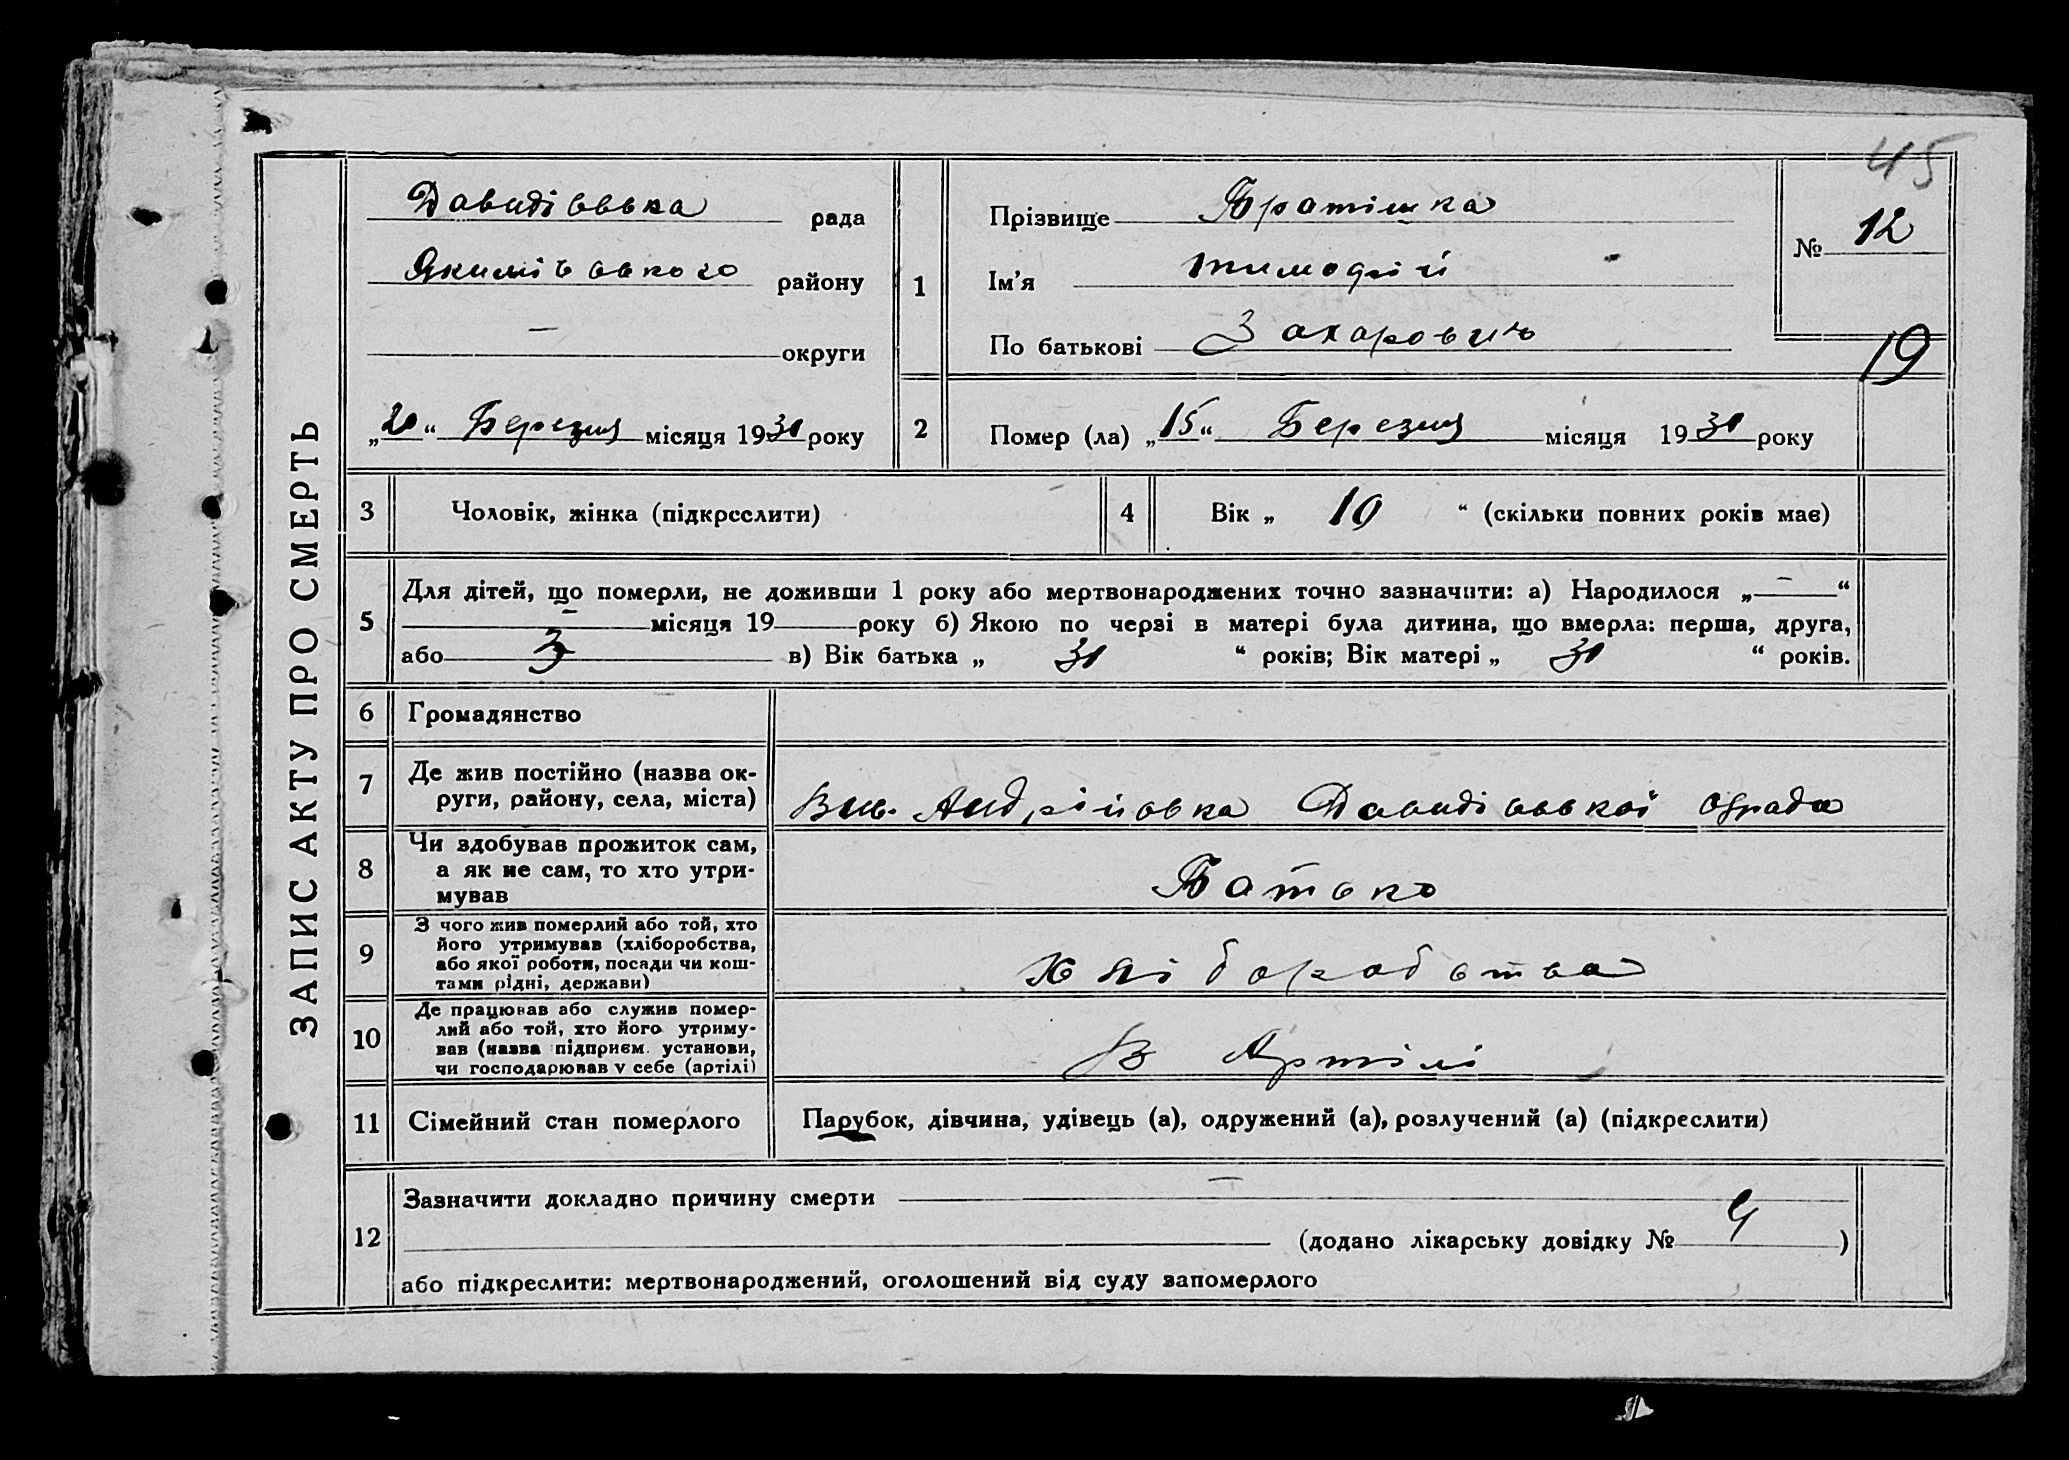 45
ЗАПИС АКТУ ПРО СМЕРТЬ
Давидівська рада
Якимівського району
— округи
„20“ Березня місяця 1930 року
1
Прізвище Братішка
Ім'я Тимофій
По батькові Захарович
№ 12
19
2
Помер (ла) „15“ Березня місяця 1930 року
3 Чоловік, жінка (підкреслити)
4 Вік „ 10 “ (скільки повних років має)
5
Для дітей, що померли, не доживши 1 року або мертвонароджених точно зазначити: а) Народилося „—“
— місяця 19 року б) Якою по черзі в матері була дитина, що вмерла: перша, друга,
або 3 в) Вік батька „ 30 “ років; Вік матері „ 30 “ років.
6 Громадянство
7 Де жив постійно (назва ок-
руги, району, села, міста)
Андрійовка Давидівської сради
8 Чи здобував прожиток сам,
а як не сам, то хто утри-
мував
Батько
9 З чого жив померлий або той, хто
його утримував (хліборобства,
або якої роботи, посади чи кош-
тами рідні, держави)
хліборобства
10 Де працював або служив помер-
лий або той, хто його утриму-
вав (назва підприєм. установи,
чи господарював у себе (артілі)
В Артілі
11 Сімейний стан померлого
Парубок, дівчина, удівець (а), одружений (а), розлучений (а) (підкреслити)
12
Зазначити докладно причину смерти —
(додано лікарську довідку № 9 )
або підкреслити: мертвонароджений, оголошений від суду запомерлого